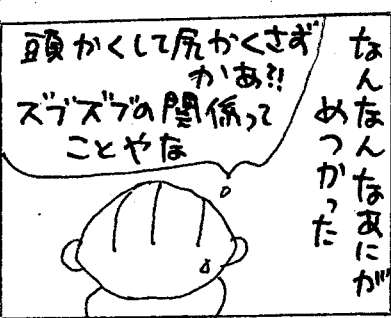 なんなんなあにが
めつかった
頭かくして尻かくさず
かあ?!
ズブズブの関係って
ことやな